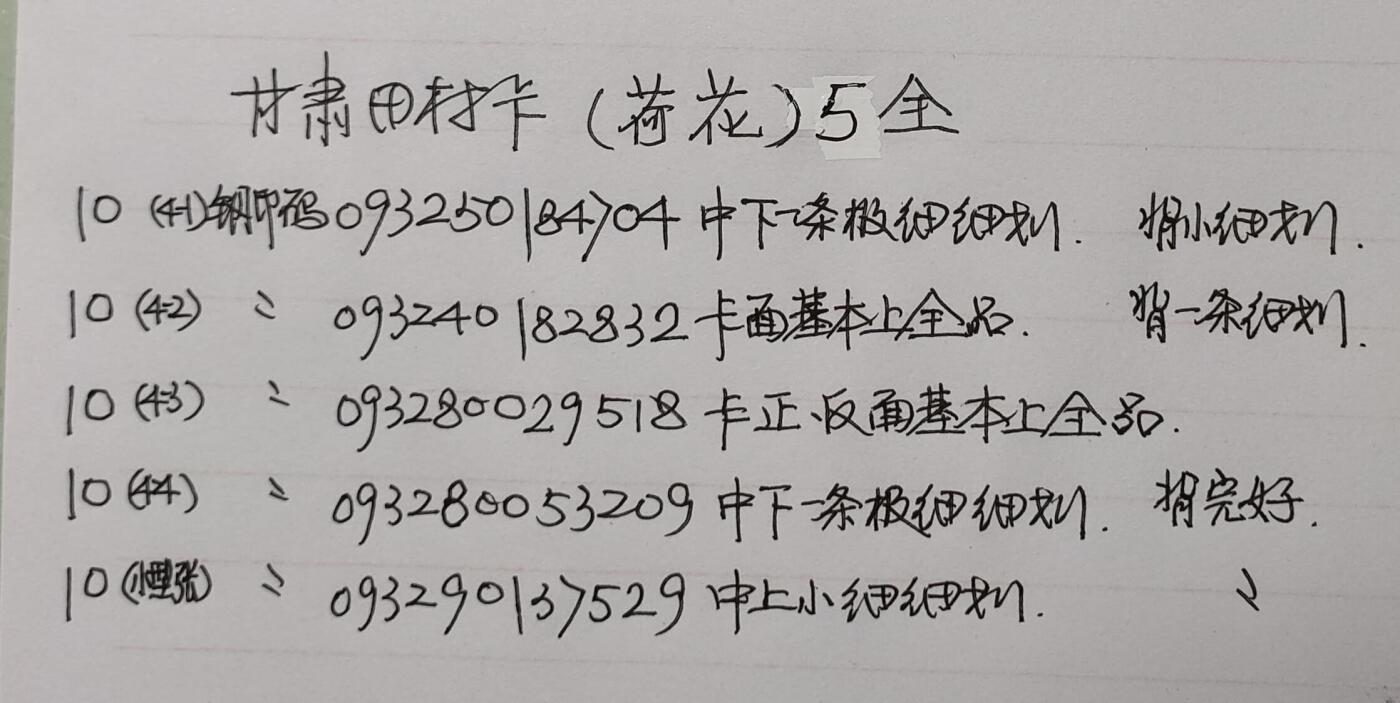 甘肃田村卡（荷花）5全
10（4-1）钢印码093250184704中下一条极细细划. 背小细划.
10（4-2）〃 093240182832卡面基本上全品. 背一条细划.
10（4-3）〃 093280029518卡正.反面基本上全品.
10（4-4）〃 093280053209中下一条极细细划. 背完好.
10（小型张）〃 093290137529中上小细细划. 〃